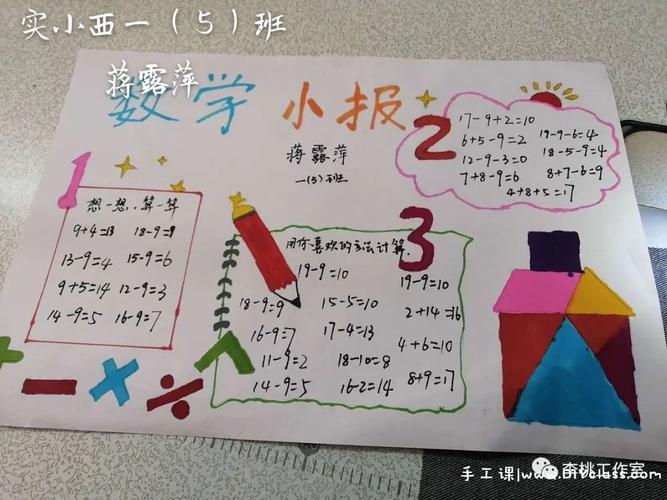 实小西一（5）班
蒋露萍
数学 小报
蒋露萍
一(5)班
1
想一想，算一算
9+4=13 18-9=9
13-9=4 15-9=6
9+5=14 12-9=3
14-9=5 16-9=7
2
17-9+2=10
6+5-9=2 19-9-6=4
12-9-3=0 18-5-9=4
7+8-9=6 8+7-6=9
4+8+5=17
3
用你喜欢的方法计算
19-9=10 19-9=10
18-9=9 15-5=10 2+14=16
16-9=7 17-4=13 4+6=10
11-9=2 18-10=8 8+9=17
14-9=5 16-2=14
李桃工作室